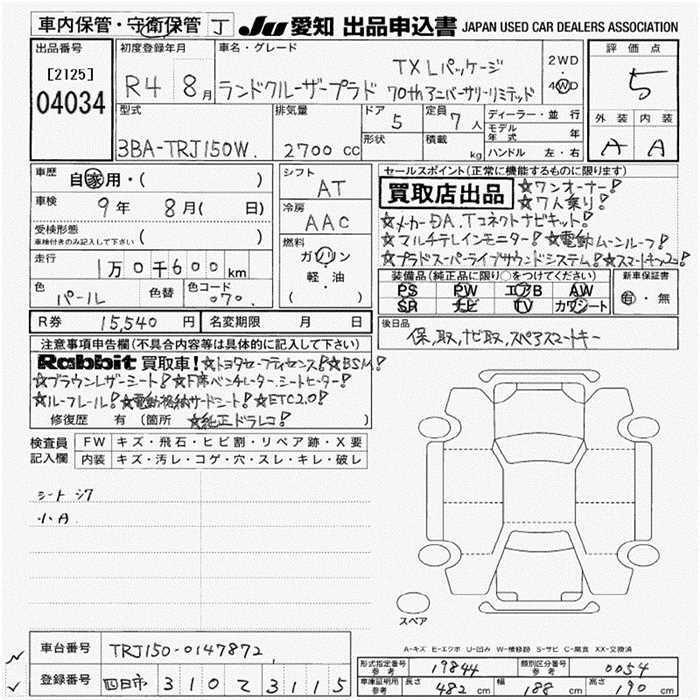 車内保管・守衛保管 J JU 愛知 出品申込書 JAPAN USED CAR DEALERS ASSOCIATION
出品番号 [2125] 04034
初度登録年月 R4 8月
車名・グレード TX Lパッケージ
ランドクルーザープラド 70thアニバーサリーリミテッド
2WD・4WD
評価点 5
外装 内装
A A
型式 3BA-TRJ150W.
排気量 2700 cc
ドア 5
形状
定員 7人
積載 kg
ディーラー・並行
モデル年式 年
ハンドル 左・右
車歴 自家用・( )
車検 9年 8月( 日)
受検形態 車検付きのみ記入して下さい ( )
走行 1万0千600km
色 パール 色替 色コード 070.
シフト AT
冷房 AAC
燃料 ガソリン・軽・油
セールスポイント(正常に機能するものに限ります)
買取店出品 ☆ワンオーナー!
☆7人乗り!
☆メーカーD.A.Tコネクトナビキット!
☆マルチテレインモニター!☆電動ムーンルーフ!
☆プラドスーパーライブサウンドシステム!☆スマートキー×2!
装備品(純正品に限り○をつけてください) 新車保証書
PS PW エアB AW 有・無
SR ナビ TV カワシート
後日品 保,取,ナビ取,スペアスマートキー
R券 15,540円 名変期限 月 日
注意事項申告欄(不具合内容等は具体的に記入して下さい)
Rabbit 買取車!☆トヨタセーフティセンス!☆BSM!
☆ブラウンレザーシート!☆F席ベンチレーター.シートヒーター!
☆ルーフレール!☆電動格納サードシート!☆ETC2.0!
修復歴 有 (箇所 ☆純正ドラレコ!)
検査員記入欄 FW キズ・飛石・ヒビ割・リペア跡・X要
内装 キズ・汚レ・コゲ・穴・スレ・キレ・破レ
シート シワ
小A
スペア
A-キズ E-エクボ U-凹み W-補修跡 S-サビ C-腐食 XX-交換済
車台番号 TRJ150-0147872
登録番号 四日市 310 て 3115
形式指定番号 参考 19844 類別区分番号 参考 0054
車庫証明用 参考 長さ 482 cm 幅 188 cm 高さ 190 cm